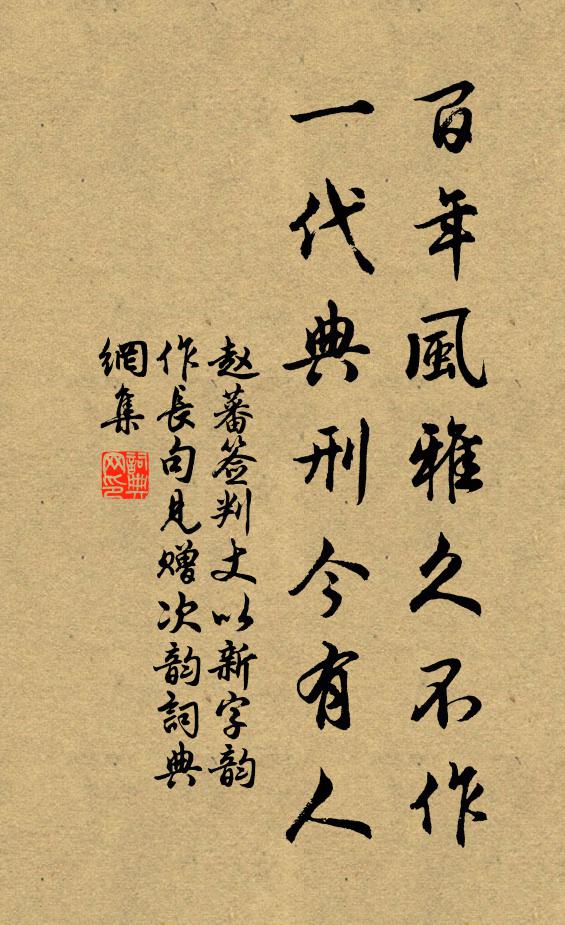 百年風雅久不作
一代典刑今有人
赵蕃签判丈以新字韵
作長句見赠次韵詞典
網集
詞典网印